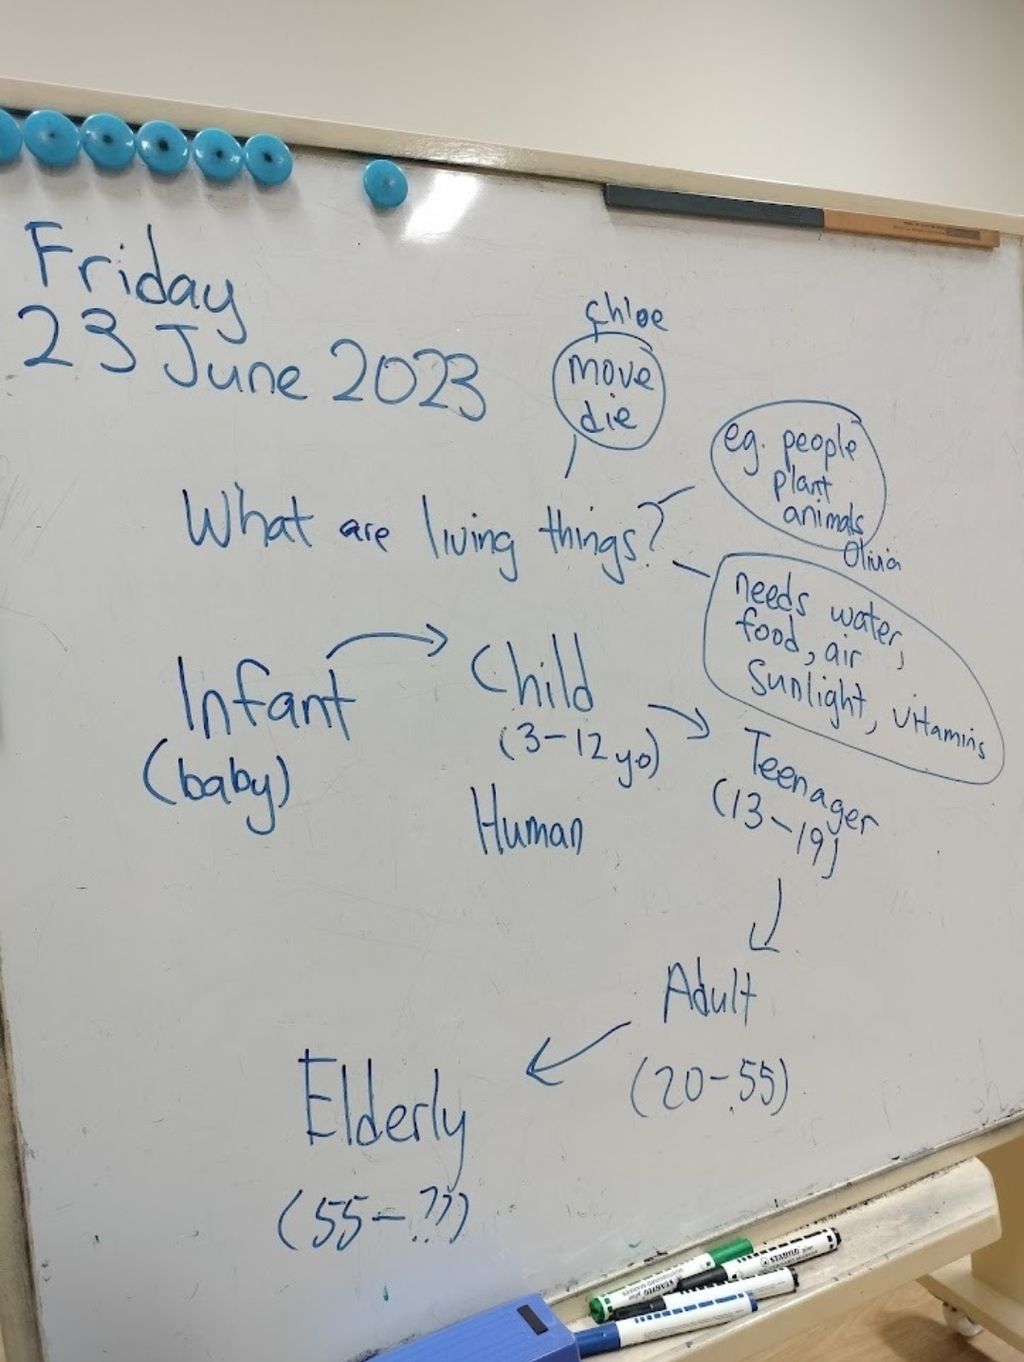 Friday
23 June 2023
chloe
move
die
eg. people
plant
animals
Olivia
What are living things?
needs water,
food, air
sunlight, vitamins
Infant
(baby)
Child
(3-12 yo)
Human
Teenager
(13-19)
Adult
(20-55)
Elderly
(55-??)
STABILO plus